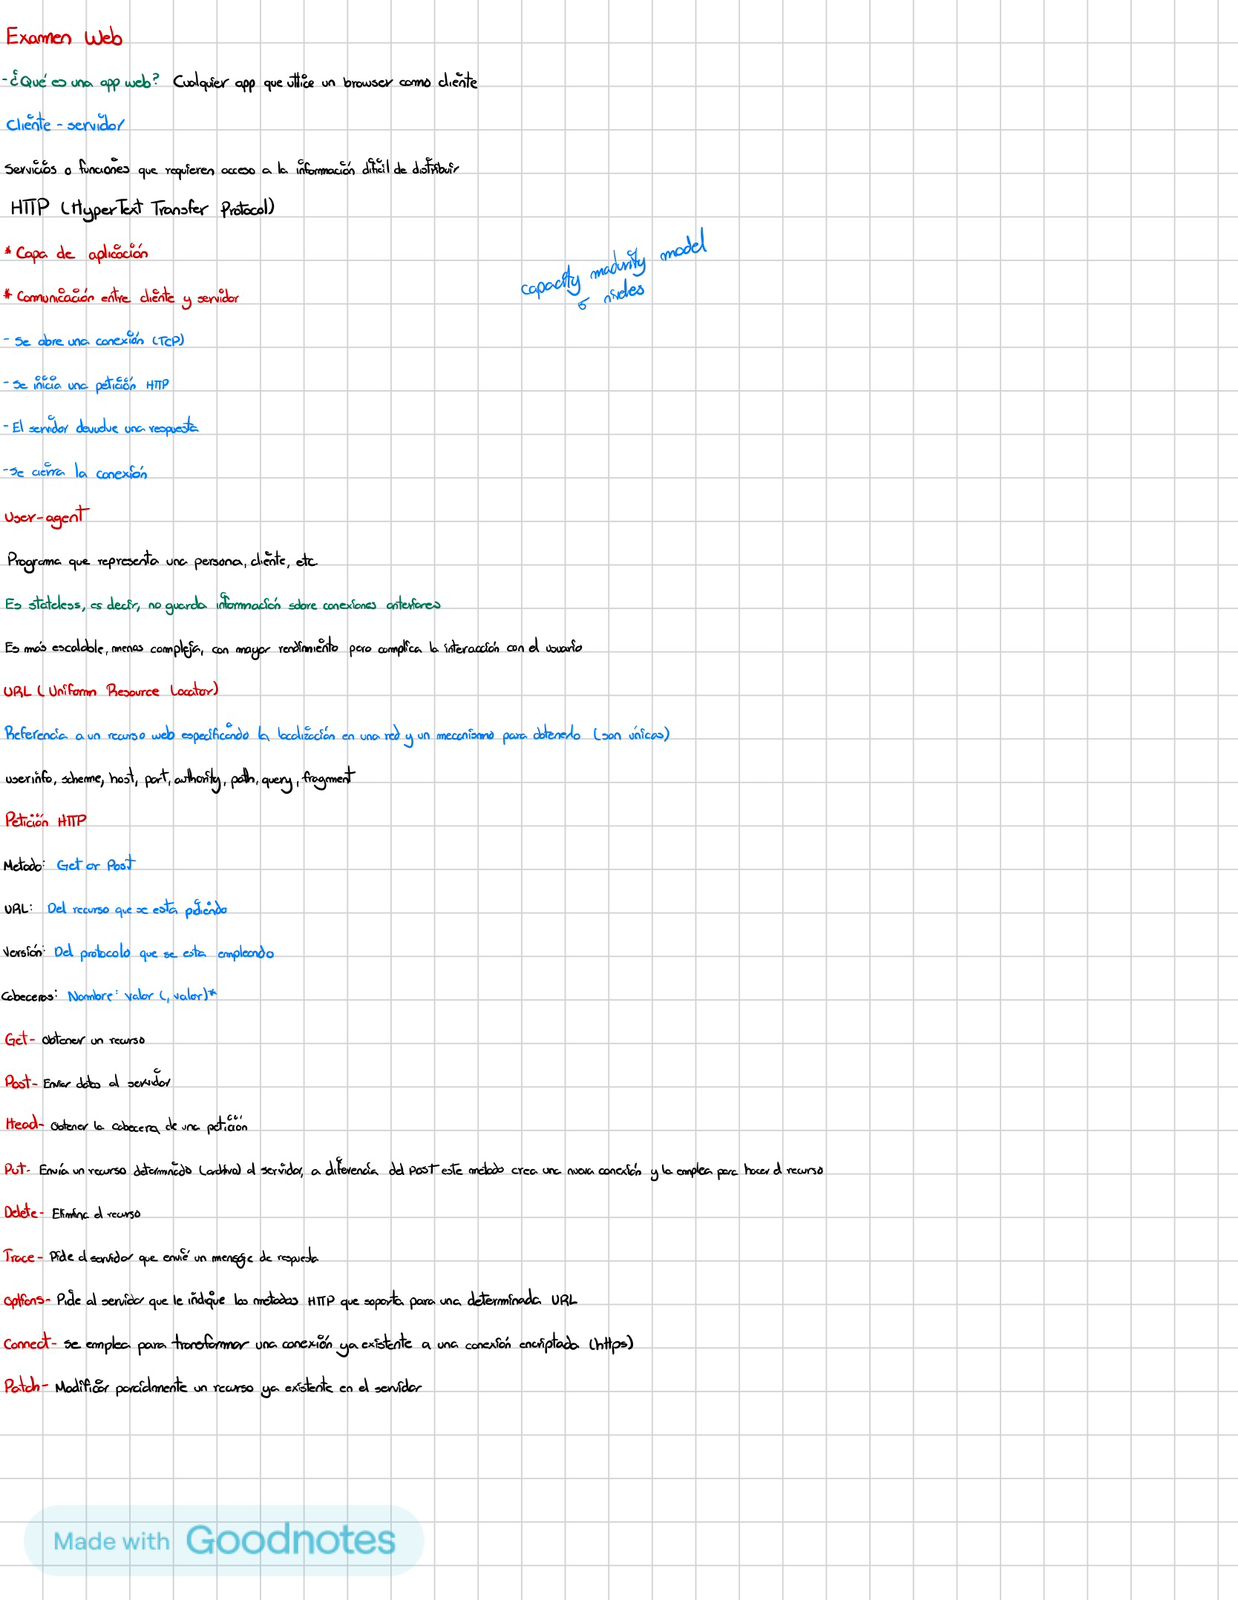 Examen Web
- ¿Qué es una app web? Cualquier app que utilice un browser como cliente
Cliente - servidor
Servicios o funciones que requieren acceso a la información dificil de distribuir
HTTP (HyperText Transfer Protocol)
* Capa de aplicación
capacity madurity model
* Comunicación entre cliente y servidor
niveles
- Se abre una conexión (TCP)
- Se inicia una petición HTTP
- El servidor devuelve una respuesta
- Se cierra la conexión
User-agent
Programa que representa una persona, cliente, etc.
Es stateless, es decir, no guarda información sobre conexiones anteriores
Es más escalable, menos compleja, con mayor rendimiento pero complica la interacción con el usuario
URL (Uniform Resource Locator)
Referencia a un recurso web especificando la localización en una red y un mecanismo para obtenerlo (son únicas)
userinfo, scheme, host, port, authority, path, query, fragment
Petición HTTP
Metodo: Get or Post
URL: Del recurso que se esta pidiendo
Versión: Del protocolo que se esta empleando
Cabeceras: Nombre: valor (, valor)*
Get- Obtener un recurso
Post- Enviar datos al servidor
Head- Obtener la cabecera de una petición
Put- Envía un recurso determinado (archivo) al servidor, a diferencia del Post este metodo crea una nueva conexión y la emplea para hacer el recurso
Delete- Elimina el recurso
Trace- Pide al servidor que envié un mensaje de respuesta
Options- Pide al servidor que le indique los metodos HTTP que soporta para una determinada URL
Connect- Se emplea para transformar una conexión ya existente a una conexión encriptada (https)
Patch- Modificar parcialmente un recurso ya existente en el servidor
Made with Goodnotes